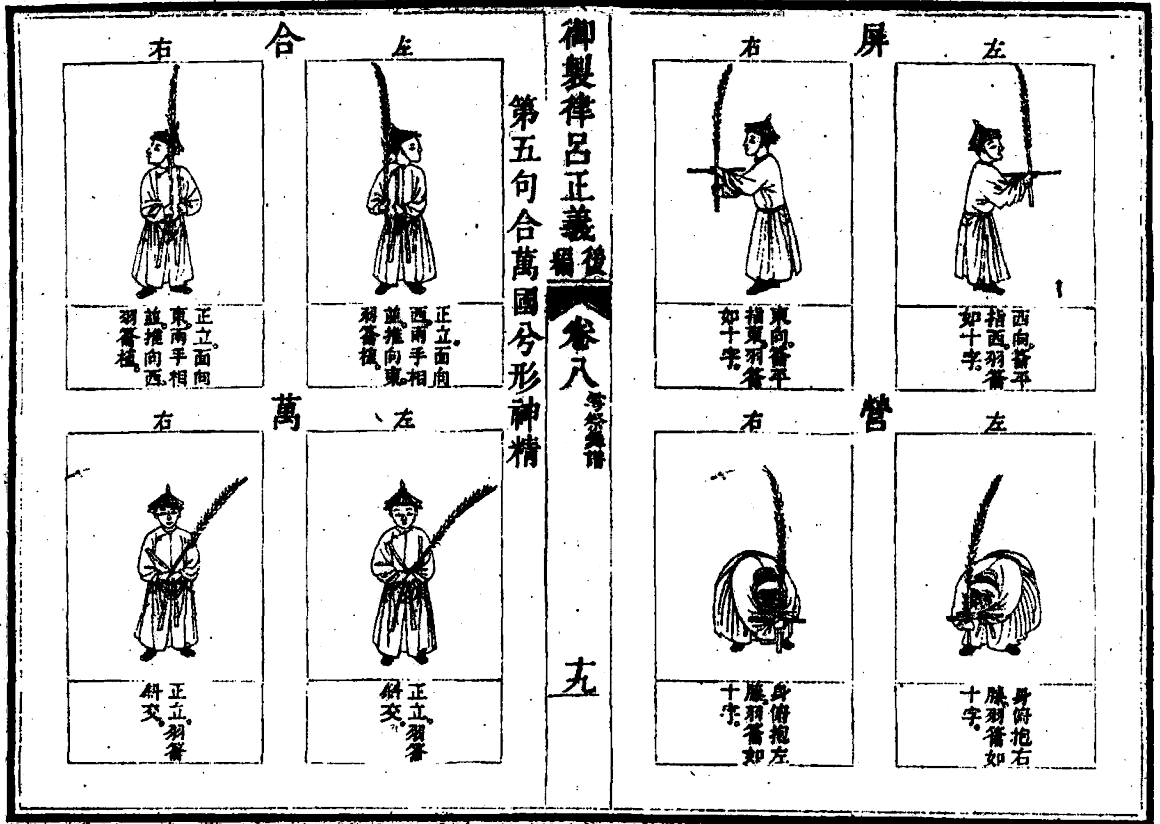 屏
左
西向。籥平
指西。羽籥
如十字。
右
東向。籥平
指東。羽籥
如十字。
營
左
身俯抱右
膝。羽籥如
十字。
右
身俯抱左
膝。羽籥如
十字。
御製律呂正義後編
卷八
雩祭舞譜
十九
第五句合萬國兮形神精
合
左
正立。面向
西。兩手相
並。推向東。
羽籥植。
右
正立。面向
東。兩手相
並。推向西。
羽籥植。
萬
左
正立。羽籥
斜交。
右
正立。羽籥
斜交。